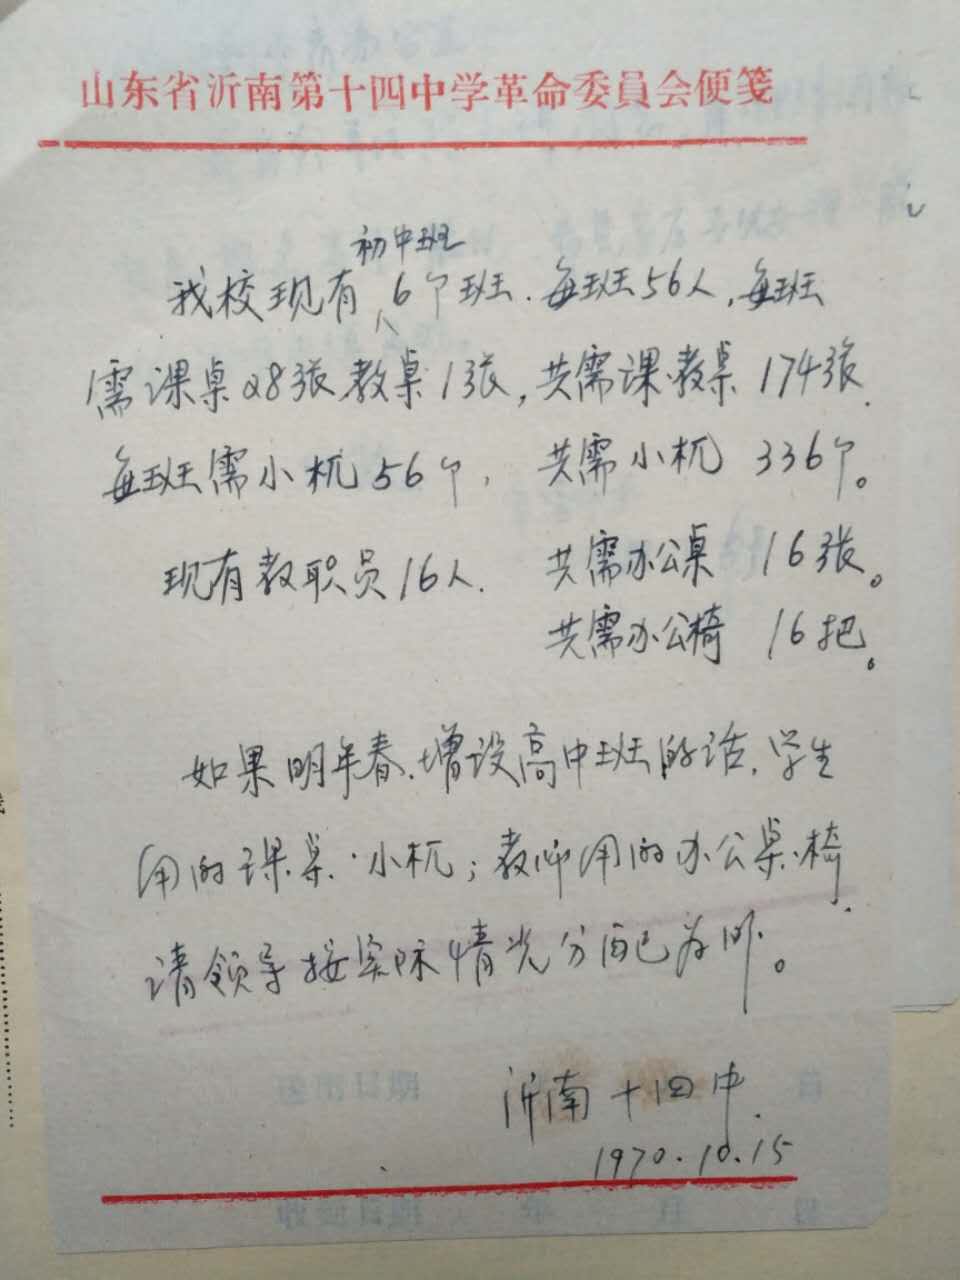 山东省沂南第十四中学革命委員会便笺
初中班
我校现有6个班.每班56人,每班
需课桌28张教桌1张,共需课.教桌174张.
每班需小杌56个, 共需小杌 336个。
现有教职员16人. 共需办公桌 16张。
共需办公椅 16把。
如果明年春.增设高中班的话,学生
用的课桌.小杌;教师用的办公桌.椅.
请领导按实际情况分配为盼。
沂南十四中.
1970.10.15